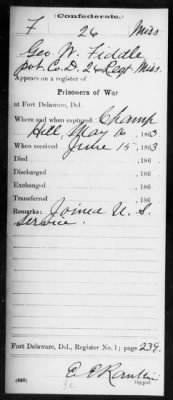 (Confederate.)
F 26 Miss
Geo. W. Fiddle
Pvt. Co. D, 26 Regt Miss.
Appears on a register of
Prisoners of War
at Fort Delaware, Del.
Where and when captured Champ
Hill, May 16, 1863
When received June 15, 1863
Died , 186
Discharged , 186
Exchanged , 186
Transferred , 186
Remarks: Joined U. S.
Service.
Fort Delaware, Del., Register No. 1; page 239.
E. E. Rankin
(639) Copyist.